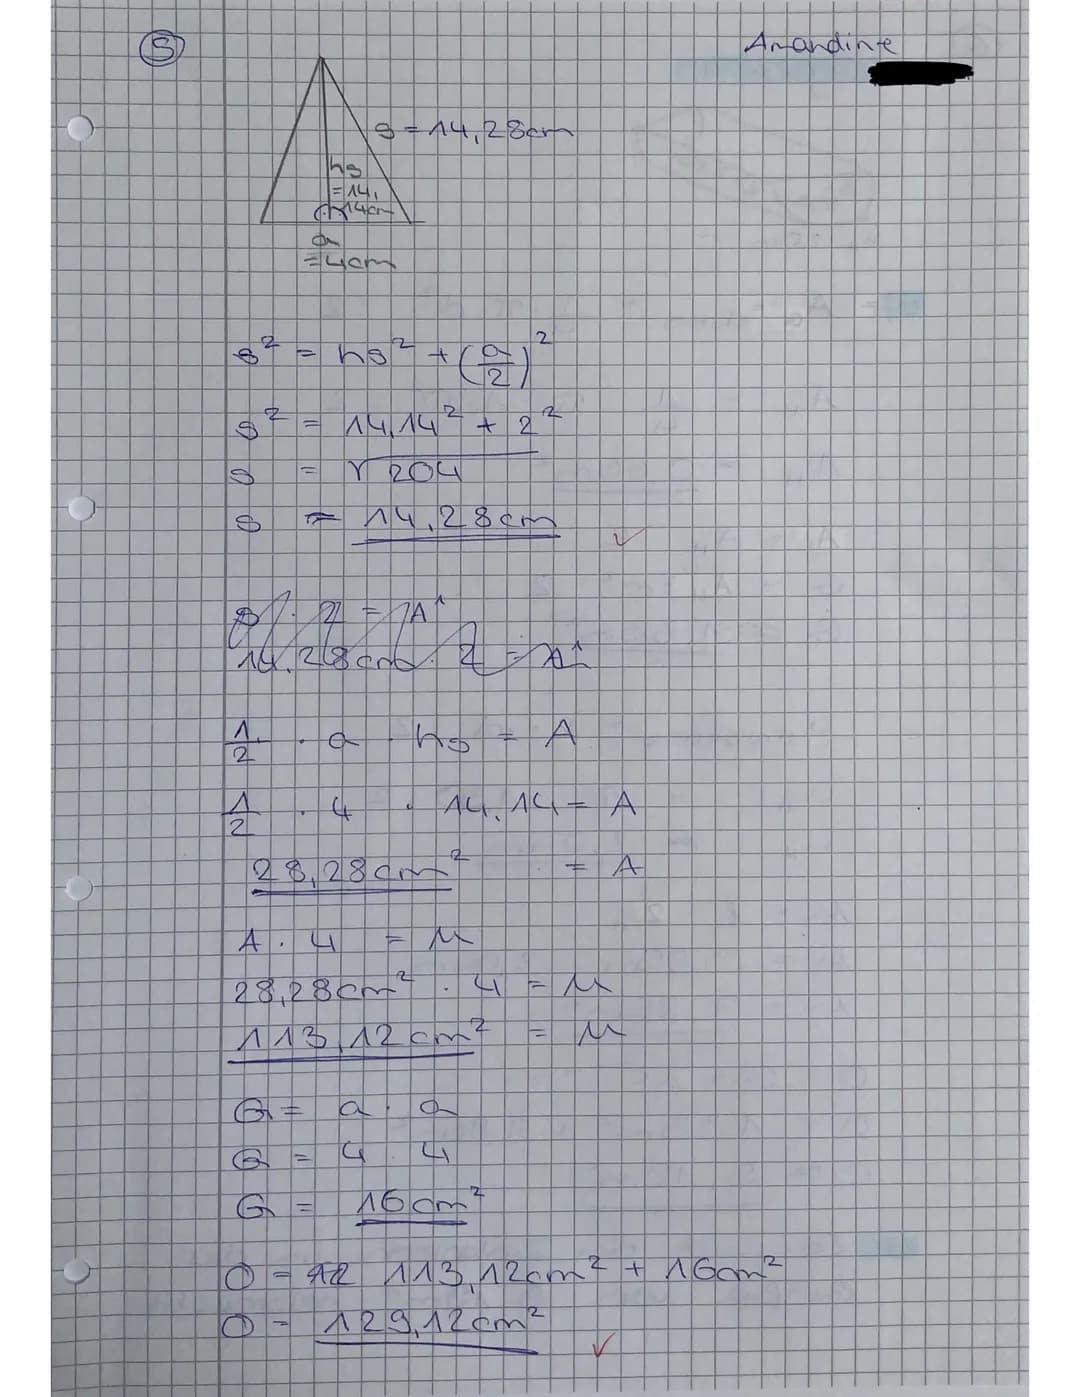 5
Amandine
s = 14,28cm
hs
= 14,
14cm
a
= 4cm
s² = hs² + (a/2)²
s² = 14,14² + 2²
s = √204
s = 14,28cm
✓
s · 2 = A
14,28cm · 2 = A
1/2 · a · hs = A
1/2 · 4 · 14,14 = A
28,28cm² = A
A · 4 = M
28,28cm² · 4 = M
113,12cm² = M
G = a · a
G = 4 · 4
G = 16cm²
O = 113,12cm² + 16cm²
O = 129,12cm²
✓